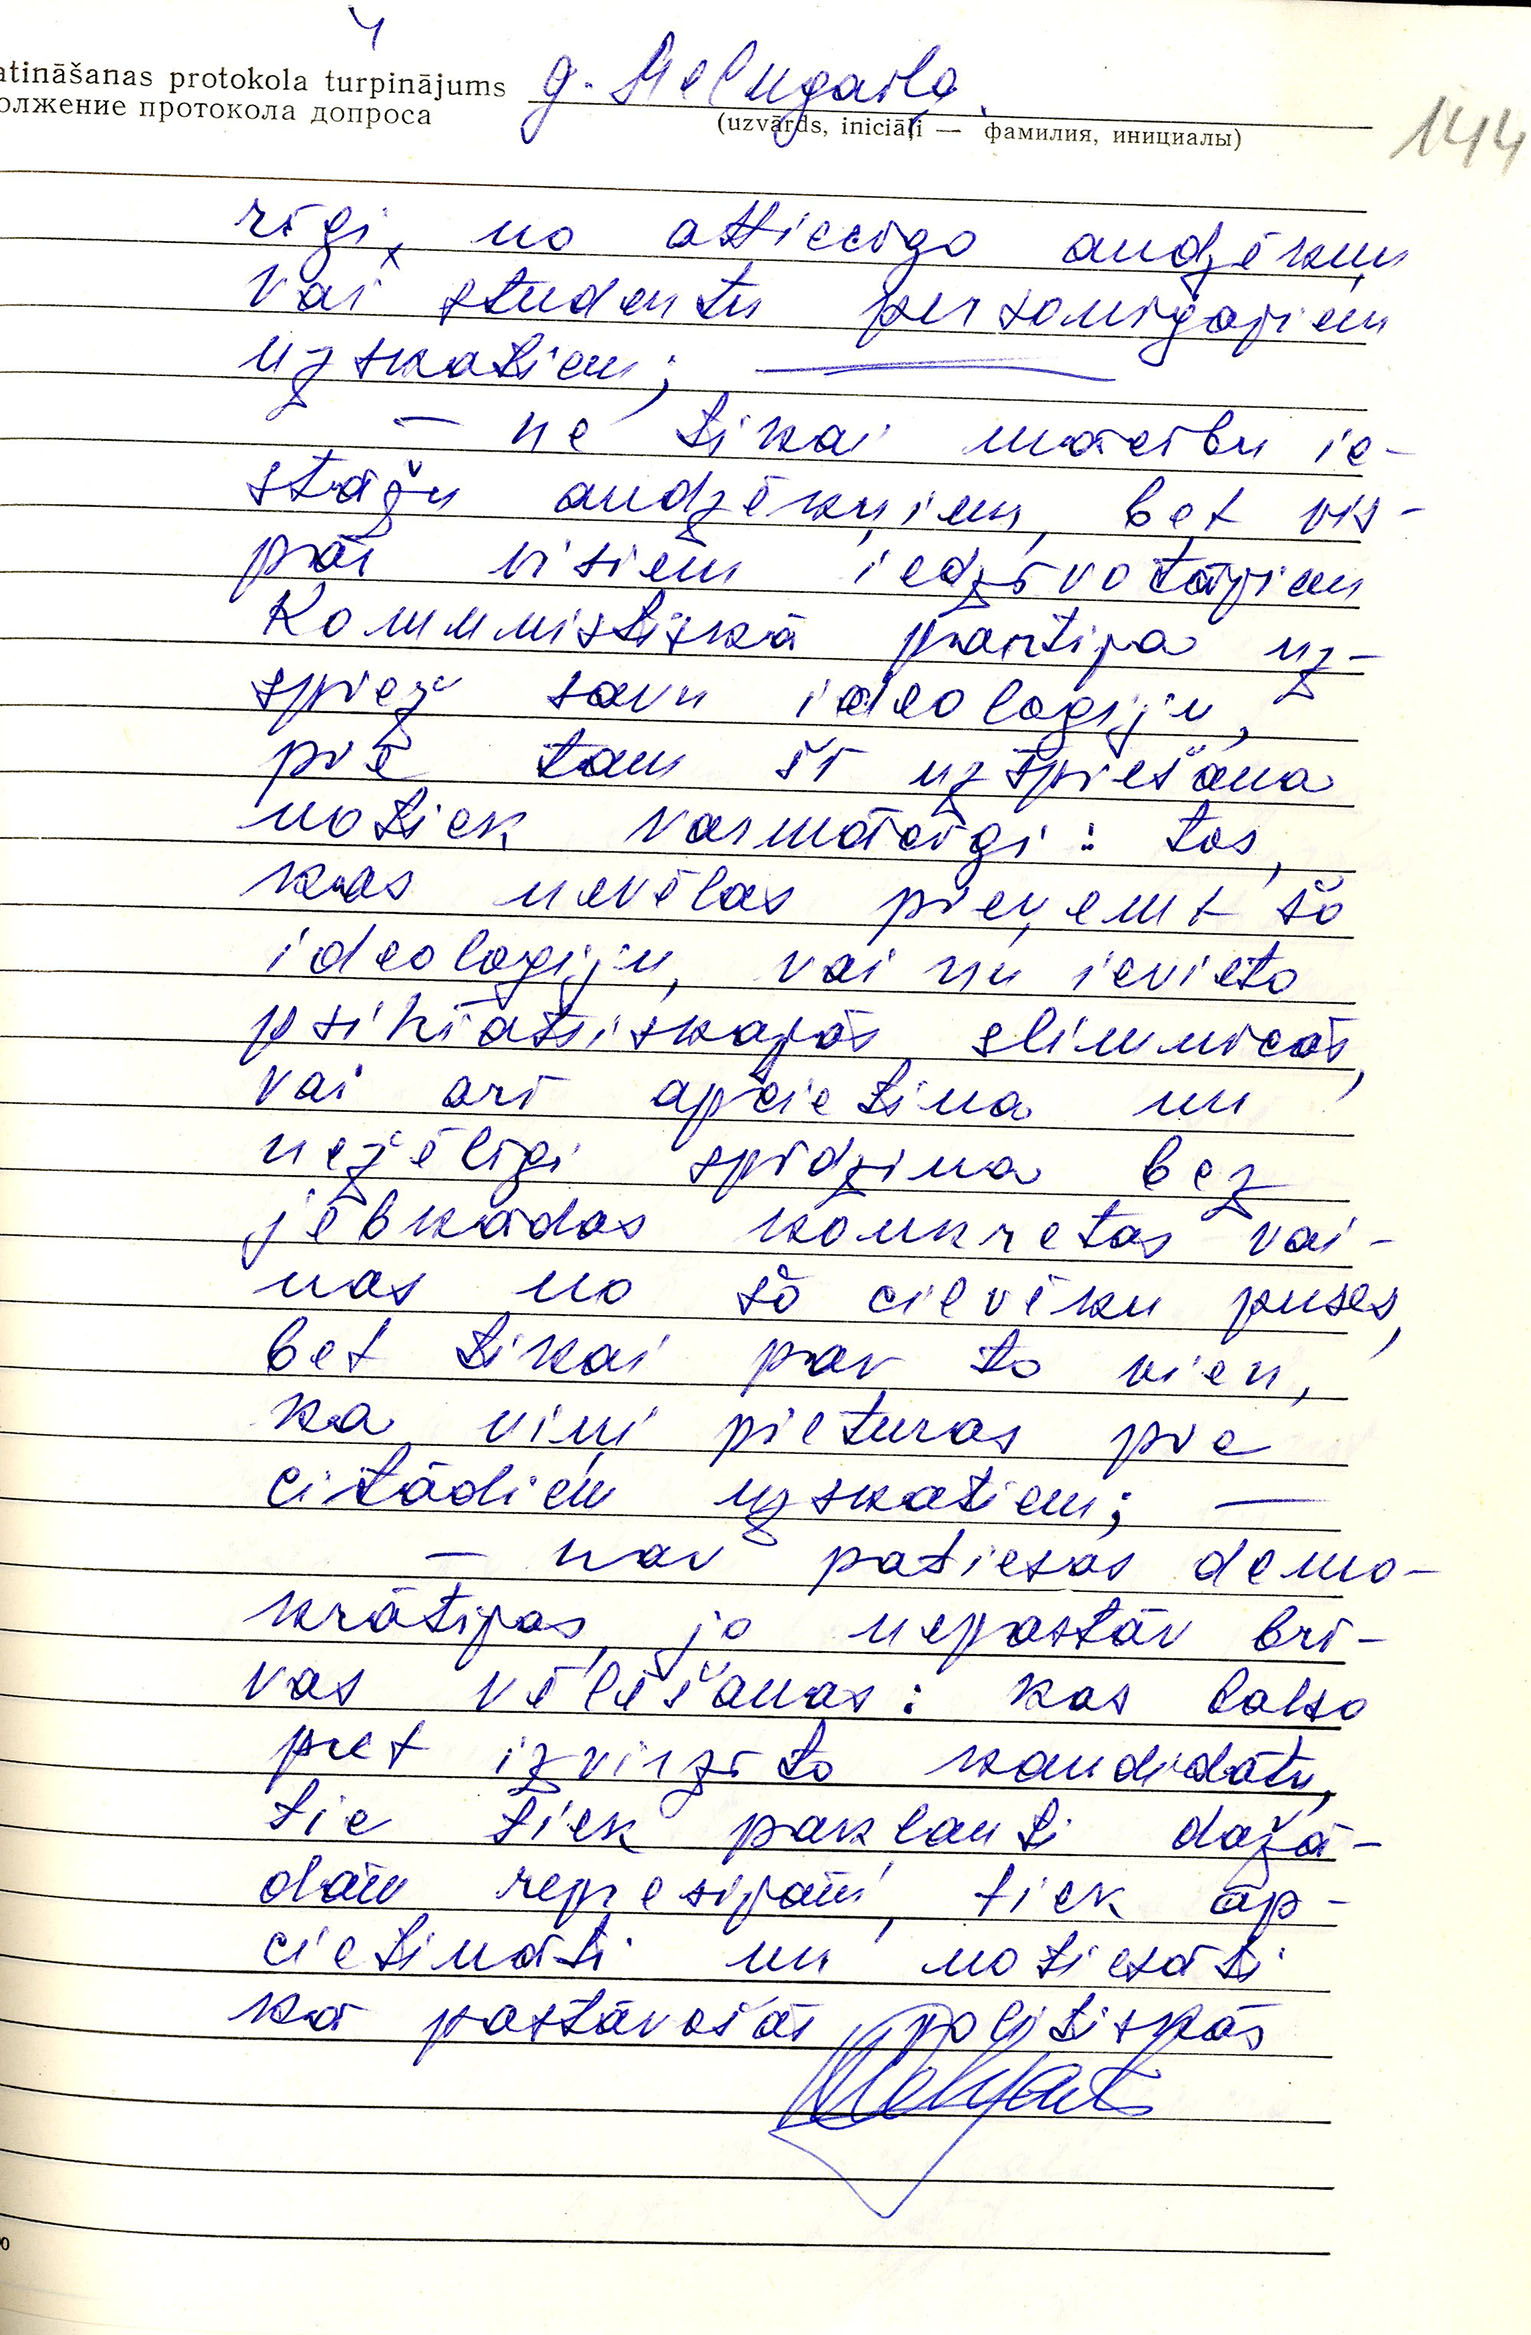 4
atināšanas protokola turpinājums g. Melngaiļa
олжение протокола допроса
(uzvārds, iniciāļi — фамилия, инициалы)
144
rīgi, no attiecīgo audzēkņu
vai studentu personīgajiem
uzskatiem;
— ne tikai mācību ie-
stāžu audzēkņiem, bet vis-
pār visiem iedzīvotājiem
Komunistiskā partija uz-
spiež savu ideoloģiju,
pie tam šī uzspiešana
notiek varmācīgi: tos,
kas nevēlas pieņemt šo
ideoloģiju, vai nu ievieto
psihiatriskajās slimnīcās,
vai arī apcietina un
nežēlīgi spīdzina bez
jebkādas konkrētas vai-
nas no šo cilvēku puses,
bet tikai par to vien,
ka viņi pieturas pie
citādiem uzskatiem; —
— nav patiesas demo-
krātijas, jo nepastāv brī-
vas vēlēšanas: kas balso
pret izvirzīto kandidātu,
tie tiek pakļauti dažā-
dām represijām, tiek ap-
cietināti un notiesāti
kā pastāvošās politiskās